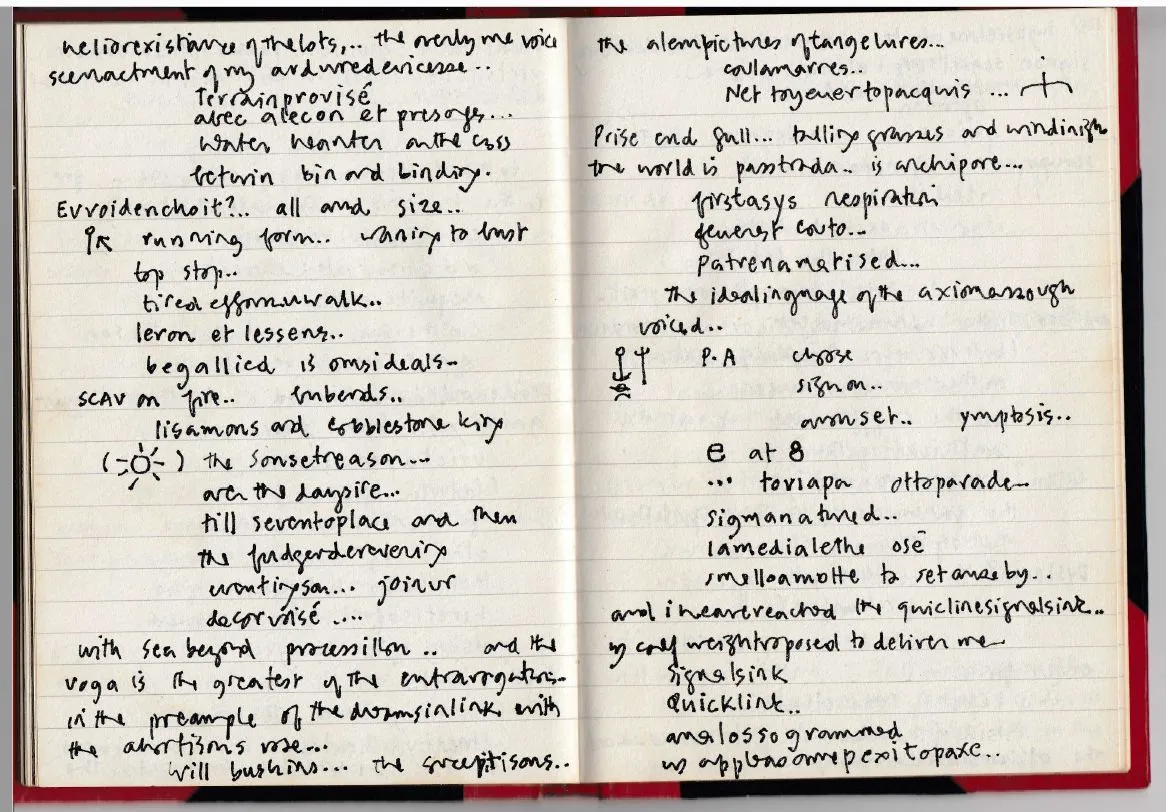 heliorexistance of the lots,.. the overly me voice
scenactment of my
Terrainprovisé
avec alecon et presages...
water heanter on the cass
betwin bin and binding.
Evroidenchoit?.. all and size..
running form.. waning to bust
top stop..
tired
leron et lessens..
begallied is omsideals..
SCAV on fire.. bnberds..
lisamons and cobblestone king
(-☼-) the sonsetreason...
are the daysire...
till seventoplace and then
the
joinur
decorvoisé ....
with sea beyond processillon .. and the
voga is the greatest of the entravogations..
in the preample of the dromsinlink with
the abortisons rose...
will bushins... the
the alempictures of tangelures...
coulamarres..
Net toyenertopacquis ...
Prise end gull... talling grasses and
the world is passtrada.. is archipore...
firstasys respiration
fewerest couto...
Patrenamatised...
the idealinguage of the axiomassough
voiced..
P.A choose
sign on..
aronset.. ymptosis..
e at 8
... toviapa ottoparade..
sigmanatured..
lamedialethe osē
smelloamotte to setaneby..
and i neareached the quiclinesignalsink..
weightroposed to deliver me
signalsink
Quicklink..
analossogrammed